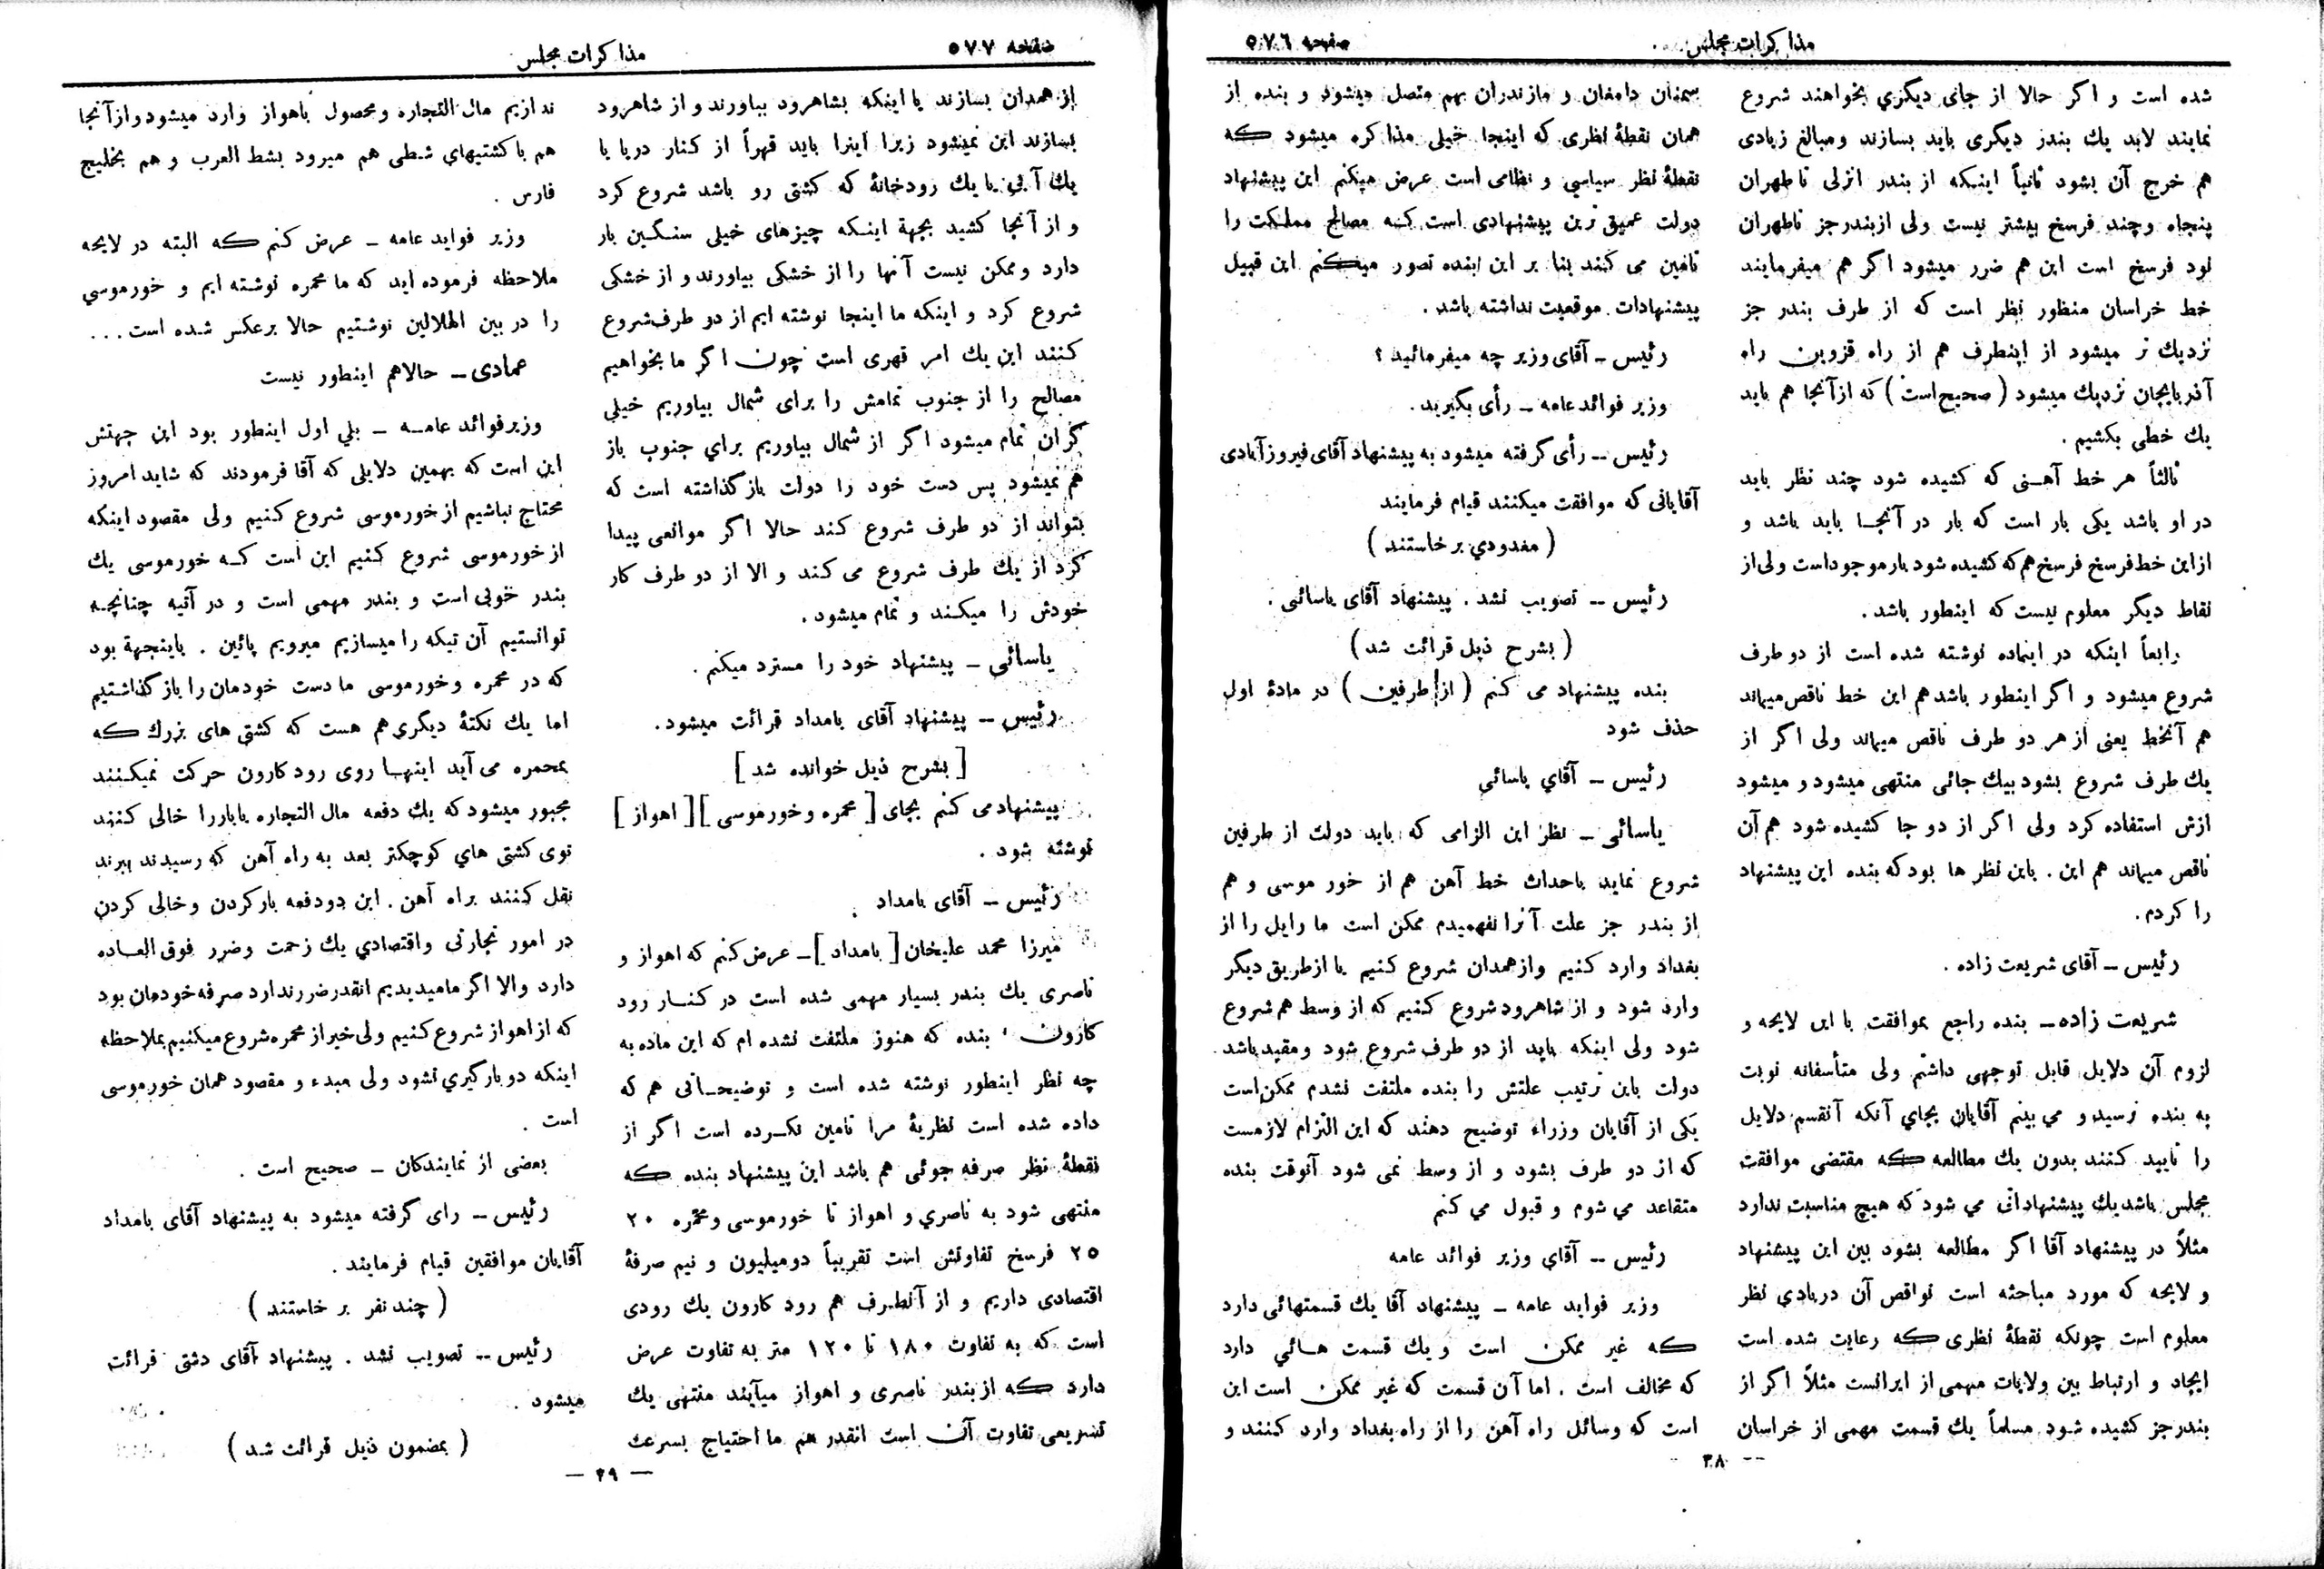 مذاکرات مجلس
صفحه ٥٧٦
شده است و اگر حالا از جای دیگری بخواهند شروع
نمایند لابد یك بندر دیگری باید بسازند ومبالغ زیادی
هم خرج آن بشود ثانیاً اینکه از بندر انزلی تاطهران
پنجاه وچند فرسخ بیشتر نیست ولی ازبندرجز تاطهران
نود فرسخ است این هم ضرر میشود اگر هم میفرمایند
خط خراسان منظور نظر است که از طرف بندر جز
نزدیك تر میشود از اینطرف هم از راه قزوین راه
آذربایجان نزدیك میشود (صحیح است) که ازآنجا هم باید
یك خطی بکشیم .
ثالثاً هر خط آهنی که کشیده شود چند نظر باید
در او باشد یکی بار است که بار در آنجا باید باشد و
ازاین خط فرسخ فرسخ هم که کشیده شود بارموجوداست ولی از
نقاط دیگر معلوم نیست که اینطور باشد .
رابعاً اینکه در اینماده نوشته شده است از دو طرف
شروع میشود و اگر اینطور باشد هم این خط ناقص میماند
هم آنخط یعنی از هر دو طرف ناقص میماند ولی اگر از
یك طرف شروع بشود بیك جائی منتهی میشود و میشود
ازش استفاده کرد ولی اگر از دو جا کشیده شود هم آن
ناقص میماند هم این . باین نظر ها بود که بنده این پیشنهاد
را کردم .
رئیس ــ آقای شریعت زاده .
شریعت زاده ــ بنده راجع بموافقت با این لایحه و
لزوم آن دلایل قابل توجهی داشتم ولی متأسفانه نوبت
به بنده نرسید و می بینم آقایان بجای آنکه آنقسم دلایل
را تایید کنند بدون یك مطالعه که مقتضی موافقت
مجلس باشد یك پیشنهاداتی می شود که هیچ مناسبت ندارد
مثلاً در پیشنهاد آقا اگر مطالعه بشود بین این پیشنهاد
و لایحه که مورد مباحثه است نواقص آن دربادی نظر
معلوم است چونکه نقطهٔ نظری که رعایت شده است
ایجاد و ارتباط بین ولایات مهمی از ایرانست مثلاً اگر از
بندرجز کشیده شود مسلماً یك قسمت مهمی از خراسان
بسمنان دامغان و مازندران بهم متصل میشود و بنده از
همان نقطهٔ نظری که اینجا خیلی مذاکره میشود که
نقطهٔ نظر سیاسی و نظامی است عرض میکنم این پیشنهاد
دولت عمیق ترین پیشنهادی است که مصالح مملکت را
تامین می کند بنا بر این بنده تصور میکنم این قبیل
پیشنهادات موقعیت نداشته باشد .
رئیس ــ آقای وزیر چه میفرمائید ؟
وزیر فوائد عامه ــ رأی بگیرید .
رئیس ــ رأی گرفته میشود به پیشنهاد آقای فیروزآبادی
آقایانی که موافقت میکنند قیام فرمایند
(معدودی برخاستند)
رئیس ــ تصویب نشد . پیشنهاد آقای یاسائی .
(بشرح ذیل قرائت شد)
بنده پیشنهاد می کنم (از طرفین) در مادهٔ اول
حذف شود
رئیس ــ آقای یاسائی
یاسائی ــ نظر این الزامی که باید دولت از طرفین
شروع نماید باحداث خط آهن هم از خور موسی و هم
از بندر جز علت آنرا نفهمیدم ممکن است ما رایل را از
بغداد وارد کنیم وازهمدان شروع کنیم یا ازطریق دیگر
وارد شود و از شاهرود شروع کنیم که از وسط هم شروع
شود ولی اینکه باید از دو طرف شروع شود و مقید باشد
دولت باین ترتیب علتش را بنده ملتفت نشدم ممکن است
یکی از آقایان وزراء توضیح دهند که این التزام لازمست
که از دو طرف بشود و از وسط نمی شود آنوقت بنده
متقاعد می شوم و قبول می کنم
رئیس ــ آقای وزیر فوائد عامه
وزیر فواید عامه ــ پیشنهاد آقا یك قسمتهائی دارد
که غیر ممکن است و یك قسمت هائی دارد
که مخالف است . اما آن قسمت که غیر ممکن است این
است که وسائل راه آهن را از راه بغداد وارد کنند و
ــ ٢٨ ــ
صفحه ٥٧٧
مذاکرات مجلس
از همدان بسازند یا اینکه بشاهرود بیاورند و از شاهرود
بسازند این نمیشود زیرا اینرا باید قهراً از کنار دریا یا
یك آبی یا یك رودخانهٔ که کشتی رو باشد شروع کرد
و از آنجا کشید بجههٔ اینکه چیزهای خیلی سنگین بار
دارد و ممکن نیست آنها را از خشکی بیاورند و از خشکی
شروع کرد و اینکه ما اینجا نوشته ایم از دو طرف شروع
کنند این یك امر قهری است چون اگر ما بخواهیم
مصالح را از جنوب تمامش را برای شمال بیاوریم خیلی
گران تمام میشود اگر از شمال بیاوریم برای جنوب باز
هم نمیشود پس دست خود را دولت بازگذاشته است که
بتواند از دو طرف شروع کند حالا اگر موانعی پیدا
کرد از یك طرف شروع می کند و الا از دو طرف کار
خودش را میکند و تمام میشود .
یاسائی ــ پیشنهاد خود را مسترد میکنم .
رئیس ــ پیشنهاد آقای بامداد قرائت میشود .
[بشرح ذیل خوانده شد]
پیشنهاد می کنم بجای [محمره و خورموسی] [اهواز]
نوشته شود .
رئیس ــ آقای بامداد
میرزا محمد علیخان [بامداد] ــ عرض کنم که اهواز و
ناصری یك بندر بسیار مهمی شده است در کنار رود
کارون ، بنده که هنوز ملتفت نشده ام که این ماده به
چه نظر اینطور نوشته شده است و توضیحاتی هم که
داده شده است نظریهٔ مرا تامین نکرده است اگر از
نقطهٔ نظر صرفه جوئی هم باشد این پیشنهاد بنده که
منتهی شود به ناصری و اهواز تا خورموسی و محمره ٢٠
٢٥ فرسخ تفاوتش است تقریباً دو میلیون و نیم صرفهٔ
اقتصادی داریم و از آنطرف هم رود کارون یك رودی
است که به تفاوت ١٨٠ تا ١٢٠ متر به تفاوت عرض
دارد که از بندر ناصری و اهواز میآیند منتهی یك
تسریعی تفاوت آن است انقدر هم ما احتیاج بسرعت
نداریم مال التجاره و محصول باهواز وارد میشود و از آنجا
هم با کشتیهای شطی هم میرود بشط العرب و هم بخلیج
فارس .
وزیر فواید عامه ــ عرض کنم که البته در لایحه
ملاحظه فرموده اید که ما محمره نوشته ایم و خورموسی
را در بین الهلالین نوشتیم حالا برعکس شده است...
عمادی ــ حالاهم اینطور نیست
وزیر فوائد عامه ــ بلی اول اینطور بود این جهتش
این است که بهمین دلایلی که آقا فرمودند که شاید امروز
محتاج نباشیم از خورموسی شروع کنیم ولی مقصود اینکه
از خورموسی شروع کنیم این است که خورموسی یك
بندر خوبی است و بندر مهمی است و در آتیه چنانچه
توانستیم آن تیکه را میسازیم میرویم پائین . باینجههٔ بود
که در محمره و خورموسی ما دست خودمان را بازگذاشتیم
اما یك نکتهٔ دیگری هم هست که کشتی های بزرك که
بمحمره می آید اینها روی رود کارون حرکت نمیکنند
مجبور میشود که یك دفعه مال التجاره یا باررا خالی کنند
توی کشتی های کوچکتر بعد به راه آهن که رسیدند ببرند
نقل کنند براه آهن . این دودفعه بارکردن و خالی کردن
در امور تجارتی و اقتصادی یك زحمت و ضرر فوق العاده
دارد والا اگر مامیدیدیم انقدر ضرر ندارد صرفه خودمان بود
که از اهواز شروع کنیم ولی خیر از محمره شروع میکنیم بملاحظه
اینکه دو بارگیری نشود ولی مبدء و مقصود همان خورموسی
است .
بعضی از نمایندگان ــ صحیح است .
رئیس ــ رای گرفته میشود به پیشنهاد آقای بامداد
آقایان موافقین قیام فرمایند .
(چند نفر بر خاستند)
رئیس ــ تصویب نشد . پیشنهاد آقای دشتی قرائت
میشود .
(بمضمون ذیل قرائت شد)
ــ ٢٩ ــ